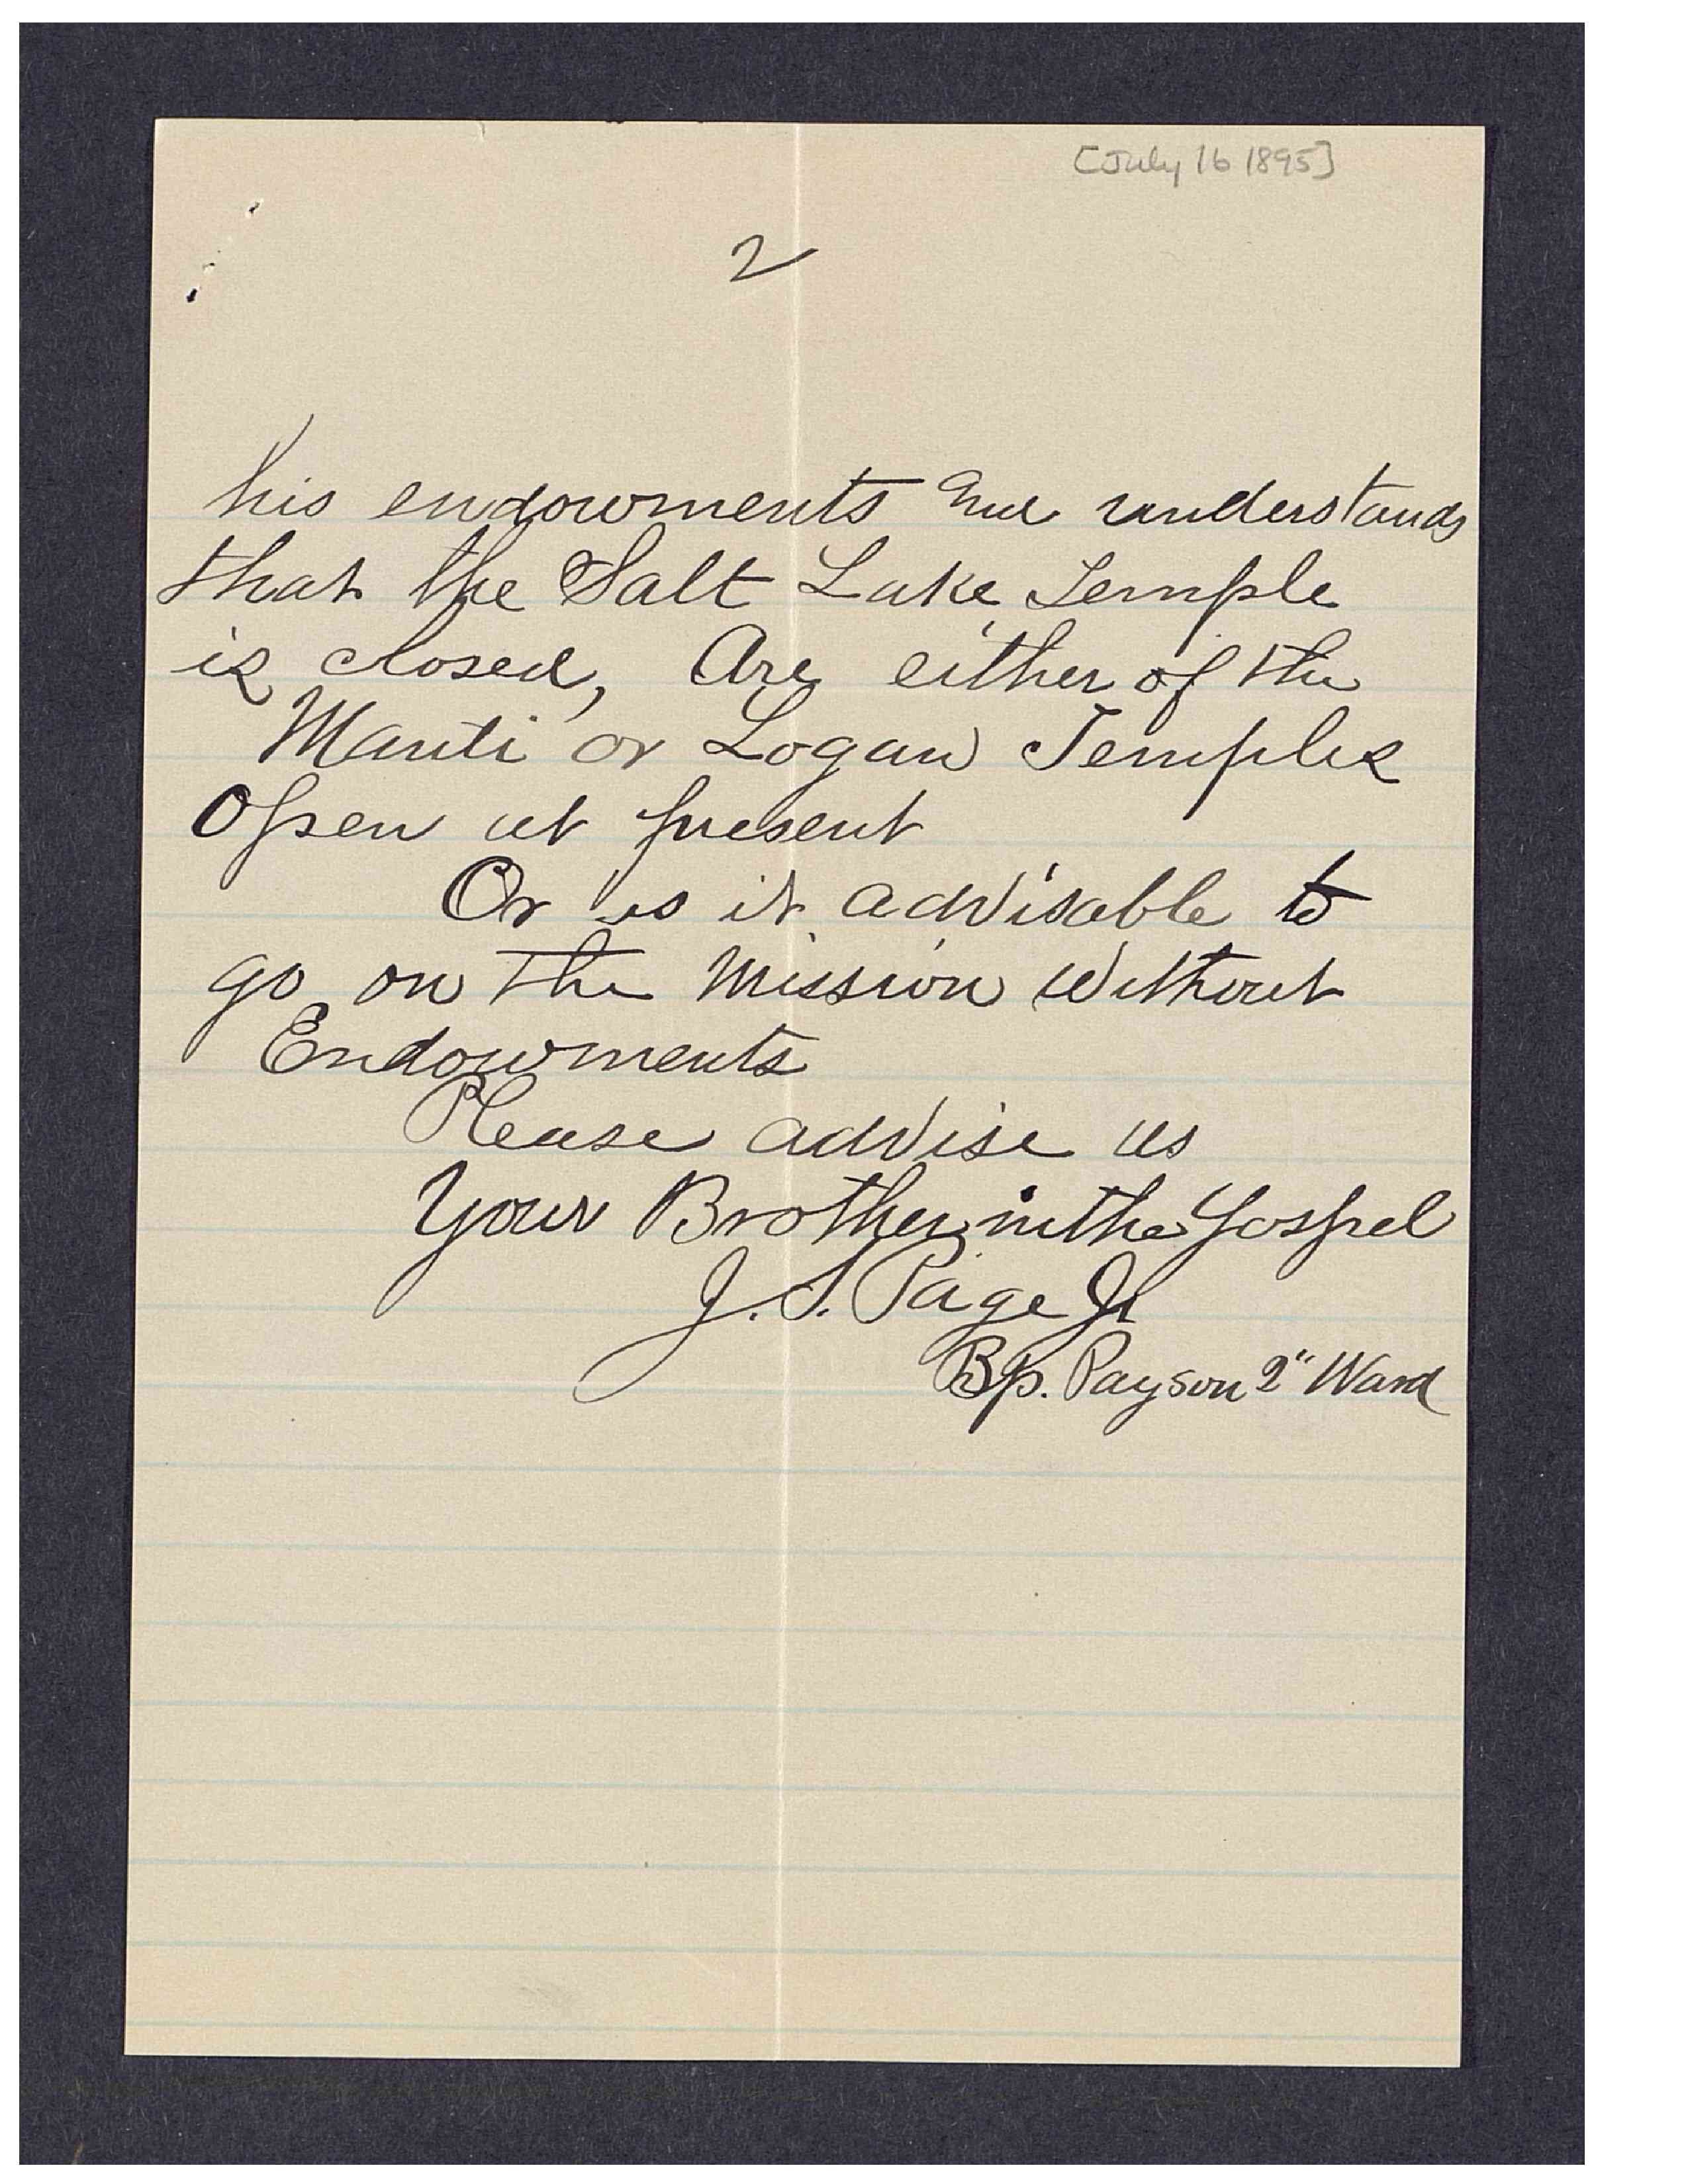 [July 16 1895]
2
his endowments and understands
that the Salt Lake Temple
is closed, Are either of the
Manti or Logan Temples
Open at present
Or is it advisable to
go on the Mission without
Endowments
Please advise us
Your Brother in the Gospel
J. S. Page Jr
Bp. Payson 2" Ward